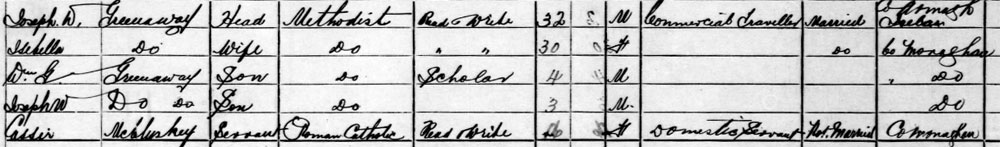 Joseph W. Greenaway Head Methodist Read & Write 32 M Commercial Traveller Married Co Armagh
Isebella Do Wife Do " " 30 F do Co Monaghan
Wm G. Greenaway Son do Scholar 4 M " Do
Joseph W Do Do Son do 3 M. Do
Cassie McCluskey Servant Roman Catholic Read & Write 16 F Domestic Servant Not Married Co Monaghan